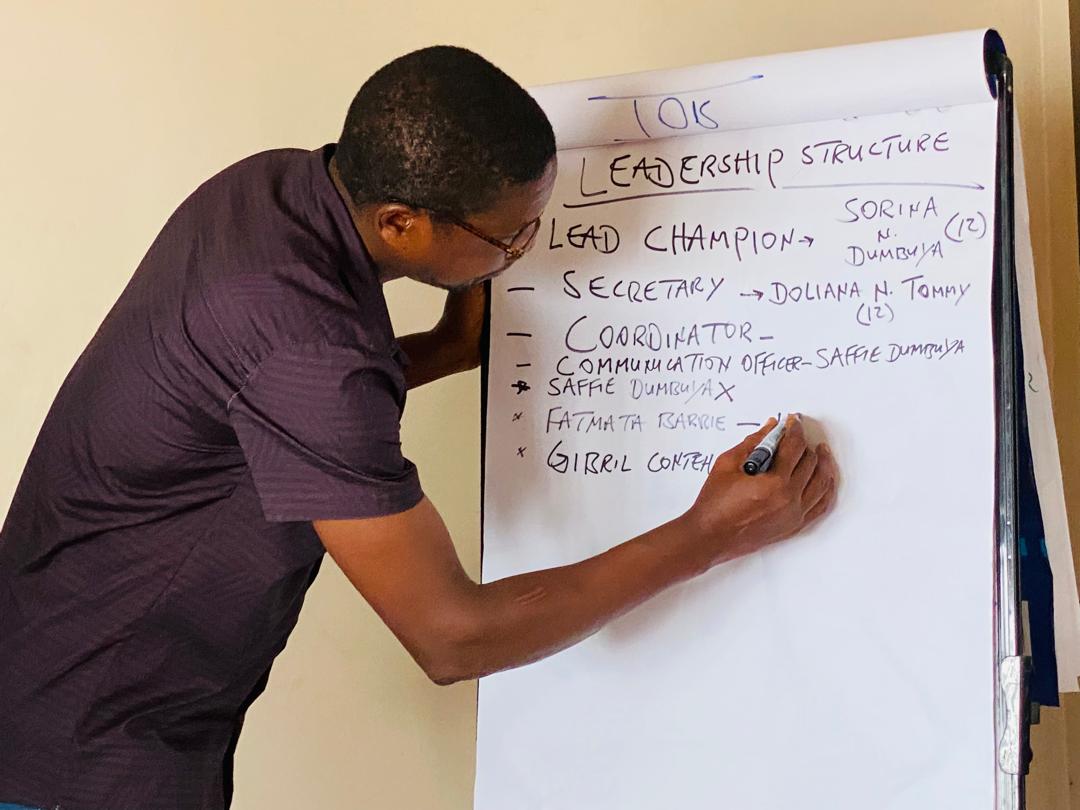 LEADERSHIP STRUCTURE
LEAD CHAMPION → SORINA N. DUMBUYA (12)
— SECRETARY → DOLIANA N. TOMMY (12)
— COORDINATOR —
— COMMUNICATION OFFICER - SAFFIE DUMBUYA
* SAFFIE DUMBUYA X
* FATMATA BARRIE —
* GIBRIL CONTEH